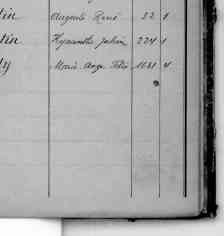 tin Auguste René 32 1
tin Hyacinthe Julien 224 1
Marie Ange 1031 4